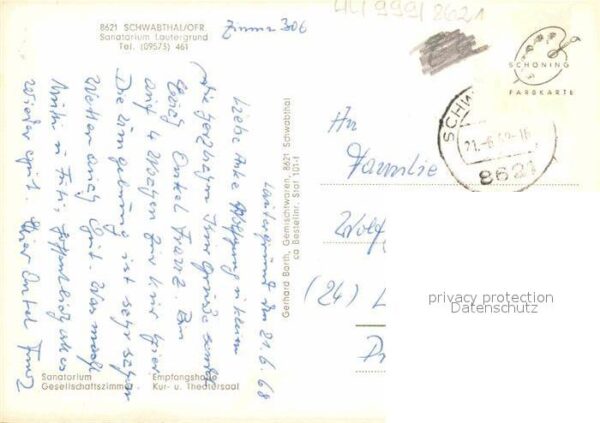 8621 SCHWABTHAL/OFR.
Sanatorium Lautergrund
Tel. (09573) 461
Zimmer 306
441999/8621
SCHÖNING
FARBKARTE
SCHW
21.-6.68-16
8621
Lautergrund den 21.6.68
Liebe Anke
Die herzlichsten Grüße sendet
Euch Onkel Franz. Bin
auf 4 Wochen zur Kur hier
Die Umgebung ist sehr schön
Wetter auch gut. Was macht
Mutti u Fritz, hoffentlich alles
wieder gut. Euer Onkel Franz
Gerhard Barth, Gemischtwaren, 8621 Schwabthal
ca Bestellnr. Staf 101-f
An
Familie
Wolf
(24) L
privacy protection
Datenschutz
Sanatorium
Gesellschaftszimmer
Empfangshalle
Kur- u. Theatersaal